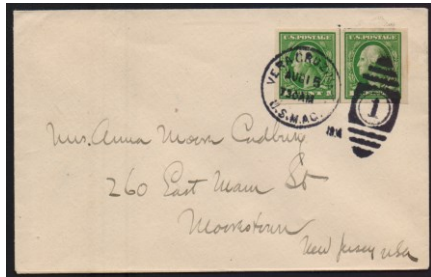 U.S. POSTAGE U.S. POSTAGE
VERA CRUZ
AUG 15
730AM
U.S.M.AG.
1914
1
Mrs. Anna Moore Cadbury
260 East Main St
Moorestown
New Jersey USA